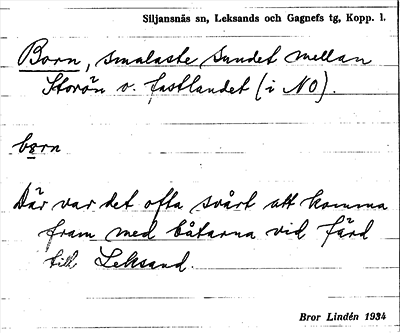 Siljansnäs sn, Leksands och Gagnefs tg, Kopp. l.
Born, smalaste sundet mellan
Storön o. fastlandet (i NO).
bɐrn
Där var det ofta svårt att komma
fram med båtarna vid färd
till Leksand.
Bror Lindén 1934